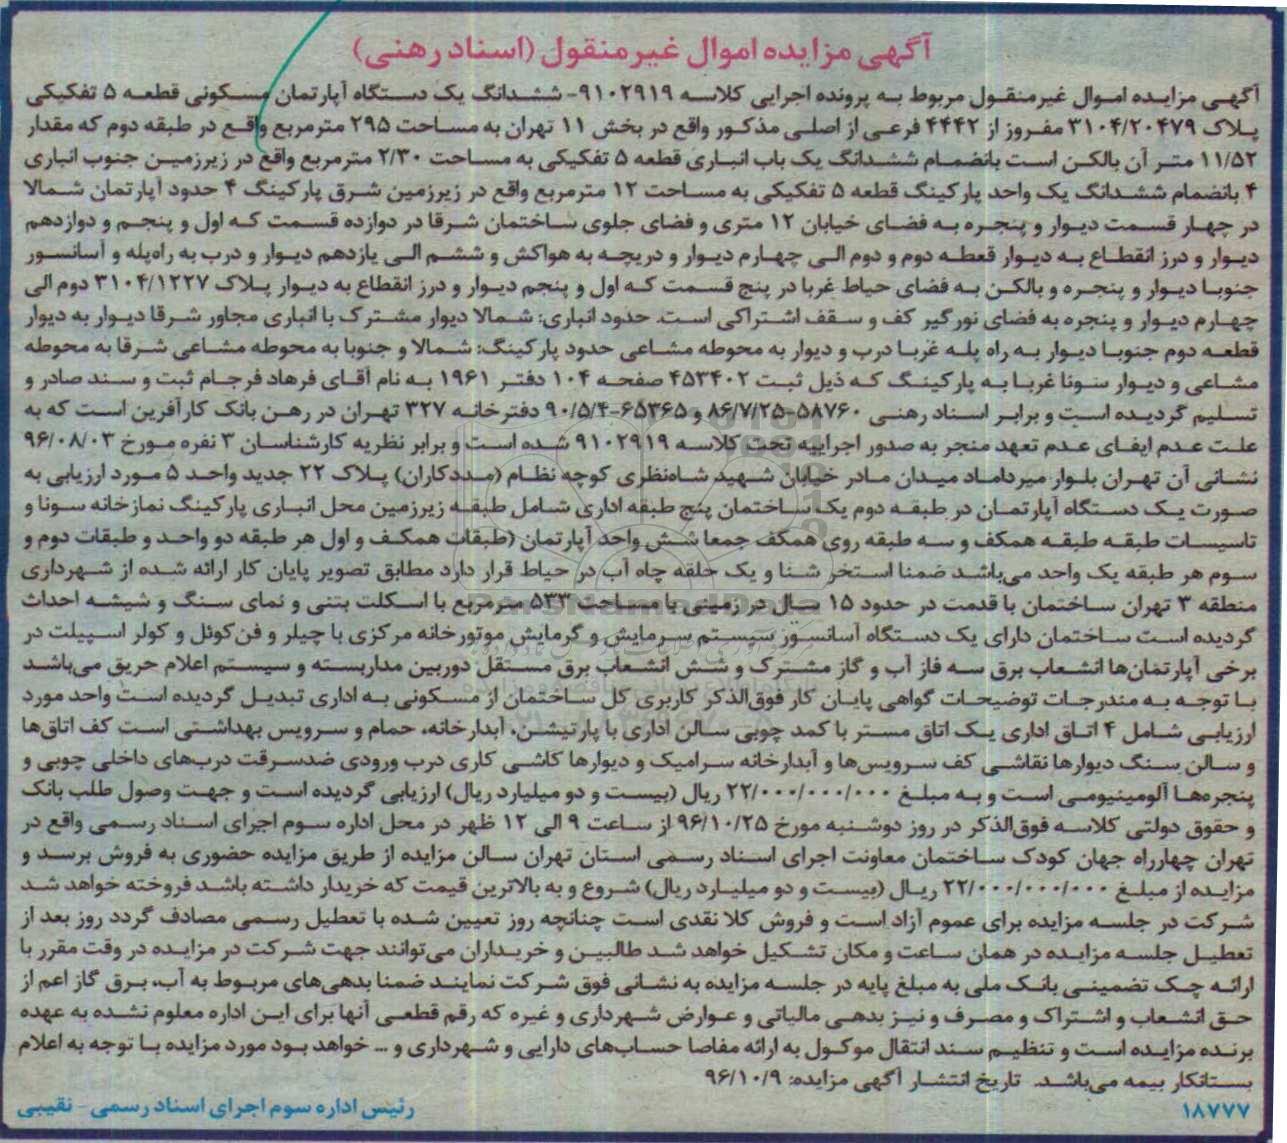 آگهی مزایده اموال غیرمنقول (اسناد رهنی)
آگهی مزایده اموال غیرمنقول مربوط به پرونده اجرایی کلاسه ۹۱۰۲۹۱۹- ششدانگ یک دستگاه آپارتمان مسکونی قطعه ۵ تفکیکی
پلاک ۳۱۰۴/۲۰۴۷۹ مفروز از ۴۴۴۲ فرعی از اصلی مذکور واقع در بخش ۱۱ تهران به مساحت ۲۹۵ مترمربع واقع در طبقه دوم که مقدار
۱۱/۵۲ متر آن بالکن است بانضمام ششدانگ یک باب انباری قطعه ۵ تفکیکی به مساحت ۲/۳۰ مترمربع واقع در زیرزمین جنوب انباری
۴ بانضمام ششدانگ یک واحد پارکینگ قطعه ۵ تفکیکی به مساحت ۱۲ مترمربع واقع در زیرزمین شرق پارکینگ ۴ حدود آپارتمان شمالا
در چهار قسمت دیوار و پنجره به فضای خیابان ۱۲ متری و فضای جلوی ساختمان شرقا در دوازده قسمت که اول و پنجم و دوازدهم
دیوار و درز انقطاع به دیوار قعطه دوم و دوم الی چهارم دیوار و دریچه به هواکش و ششم الی یازدهم دیوار و درب به راه‌پله و آسانسور
جنوبا دیوار و پنجره و بالکن به فضای حیاط غربا در پنج قسمت که اول و پنجم دیوار و درز انقطاع به دیوار پلاک ۳۱۰۴/۱۲۲۷ دوم الی
چهارم دیوار و پنجره به فضای نورگیر کف و سقف اشتراکی است. حدود انباری: شمالا دیوار مشترک با انباری مجاور شرقا دیوار به دیوار
قطعه دوم جنوبا دیوار به راه پله غربا درب و دیوار به محوطه مشاعی حدود پارکینگ: شمالا و جنوبا به محوطه مشاعی شرقا به محوطه
مشاعی و دیوار سونا غربا به پارکینگ که ذیل ثبت ۴۵۳۴۰۲ صفحه ۱۰۴ دفتر ۱۹۶۱ به نام آقای فرهاد فرجام ثبت و سند صادر و
تسلیم گردیده است و برابر اسناد رهنی ۵۸۷۶۰-۸۶/۷/۲۵ و ۶۵۳۶۵-۹۰/۵/۴ دفترخانه ۳۲۷ تهران در رهن بانک کارآفرین است که به
علت عدم ایفای عدم تعهد منجر به صدور اجراییه تحت کلاسه ۹۱۰۲۹۱۹ شده است و برابر نظریه کارشناسان ۳ نفره مورخ ۹۶/۰۸/۰۳
نشانی آن تهران بلوار میرداماد میدان مادر خیابان شهید شاه‌نظری کوچه نظام (مددکاران) پلاک ۲۲ جدید واحد ۵ مورد ارزیابی به
صورت یک دستگاه آپارتمان در طبقه دوم یک ساختمان پنج طبقه اداری شامل طبقه زیرزمین محل انباری پارکینگ نمازخانه سونا و
تاسیسات طبقه طبقه همکف و سه طبقه روی همکف جمعا شش واحد آپارتمان (طبقات همکف و اول هر طبقه دو واحد و طبقات دوم و
سوم هر طبقه یک واحد می‌باشد ضمنا استخر شنا و یک حلقه چاه آب در حیاط قرار دارد مطابق تصویر پایان کار ارائه شده از شهرداری
منطقه ۳ تهران ساختمان با قدمت در حدود ۱۵ سال در زمینی با مساحت ۵۳۳ مترمربع با اسکلت بتنی و نمای سنگ و شیشه احداث
گردیده است ساختمان دارای یک دستگاه آسانسور سیستم سرمایش و گرمایش موتورخانه مرکزی با چیلر و فن‌کوئل و کولر اسپیلت در
برخی آپارتمان‌ها انشعاب برق سه فاز آب و گاز مشترک و شش انشعاب برق مستقل دوربین مداربسته و سیستم اعلام حریق می‌باشد
با توجه به مندرجات توضیحات گواهی پایان کار فوق‌الذکر کاربری کل ساختمان از مسکونی به اداری تبدیل گردیده است واحد مورد
ارزیابی شامل ۴ اتاق اداری یک اتاق مستر با کمد چوبی سالن اداری با پارتیشن، آبدارخانه، حمام و سرویس بهداشتی است کف اتاق‌ها
و سالن سنگ دیوارها نقاشی کف سرویس‌ها و آبدارخانه سرامیک و دیوارها کاشی کاری درب ورودی ضدسرقت درب‌های داخلی چوبی و
پنجره‌ها آلومینیومی است و به مبلغ ۲۲/۰۰۰/۰۰۰/۰۰۰ ریال (بیست و دو میلیارد ریال) ارزیابی گردیده است و جهت وصول طلب بانک
و حقوق دولتی کلاسه فوق‌الذکر در روز دوشنبه مورخ ۹۶/۱۰/۲۵ از ساعت ۹ الی ۱۲ ظهر در محل اداره سوم اجرای اسناد رسمی واقع در
تهران چهارراه جهان کودک ساختمان معاونت اجرای اسناد رسمی استان تهران سالن مزایده از طریق مزایده حضوری به فروش برسد و
مزایده از مبلغ ۲۲/۰۰۰/۰۰۰/۰۰۰ ریال (بیست و دو میلیارد ریال) شروع و به بالاترین قیمت که خریدار داشته باشد فروخته خواهد شد
شرکت در جلسه مزایده برای عموم آزاد است و فروش کلا نقدی است چنانچه روز تعیین شده با تعطیل رسمی مصادف گردد روز بعد از
تعطیل جلسه مزایده در همان ساعت و مکان تشکیل خواهد شد طالبین و خریداران می‌توانند جهت شرکت در مزایده در وقت مقرر با
ارائه چک تضمینی بانک ملی به مبلغ پایه در جلسه مزایده به نشانی فوق شرکت نمایند ضمنا بدهی‌های مربوط به آب، برق گاز اعم از
حق انشعاب و اشتراک و مصرف و نیز بدهی مالیاتی و عوارض شهرداری و غیره که رقم قطعی آنها برای این اداره معلوم نشده به عهده
برنده مزایده است و تنظیم سند انتقال موکول به ارائه مفاصا حساب‌های دارایی و شهرداری و ... خواهد بود مورد مزایده با توجه به اعلام
بستانکار بیمه می‌باشد. تاریخ انتشار آگهی مزایده: ۹۶/۱۰/۹
۱۸۷۷۷ رئیس اداره سوم اجرای اسناد رسمی - نقیبی